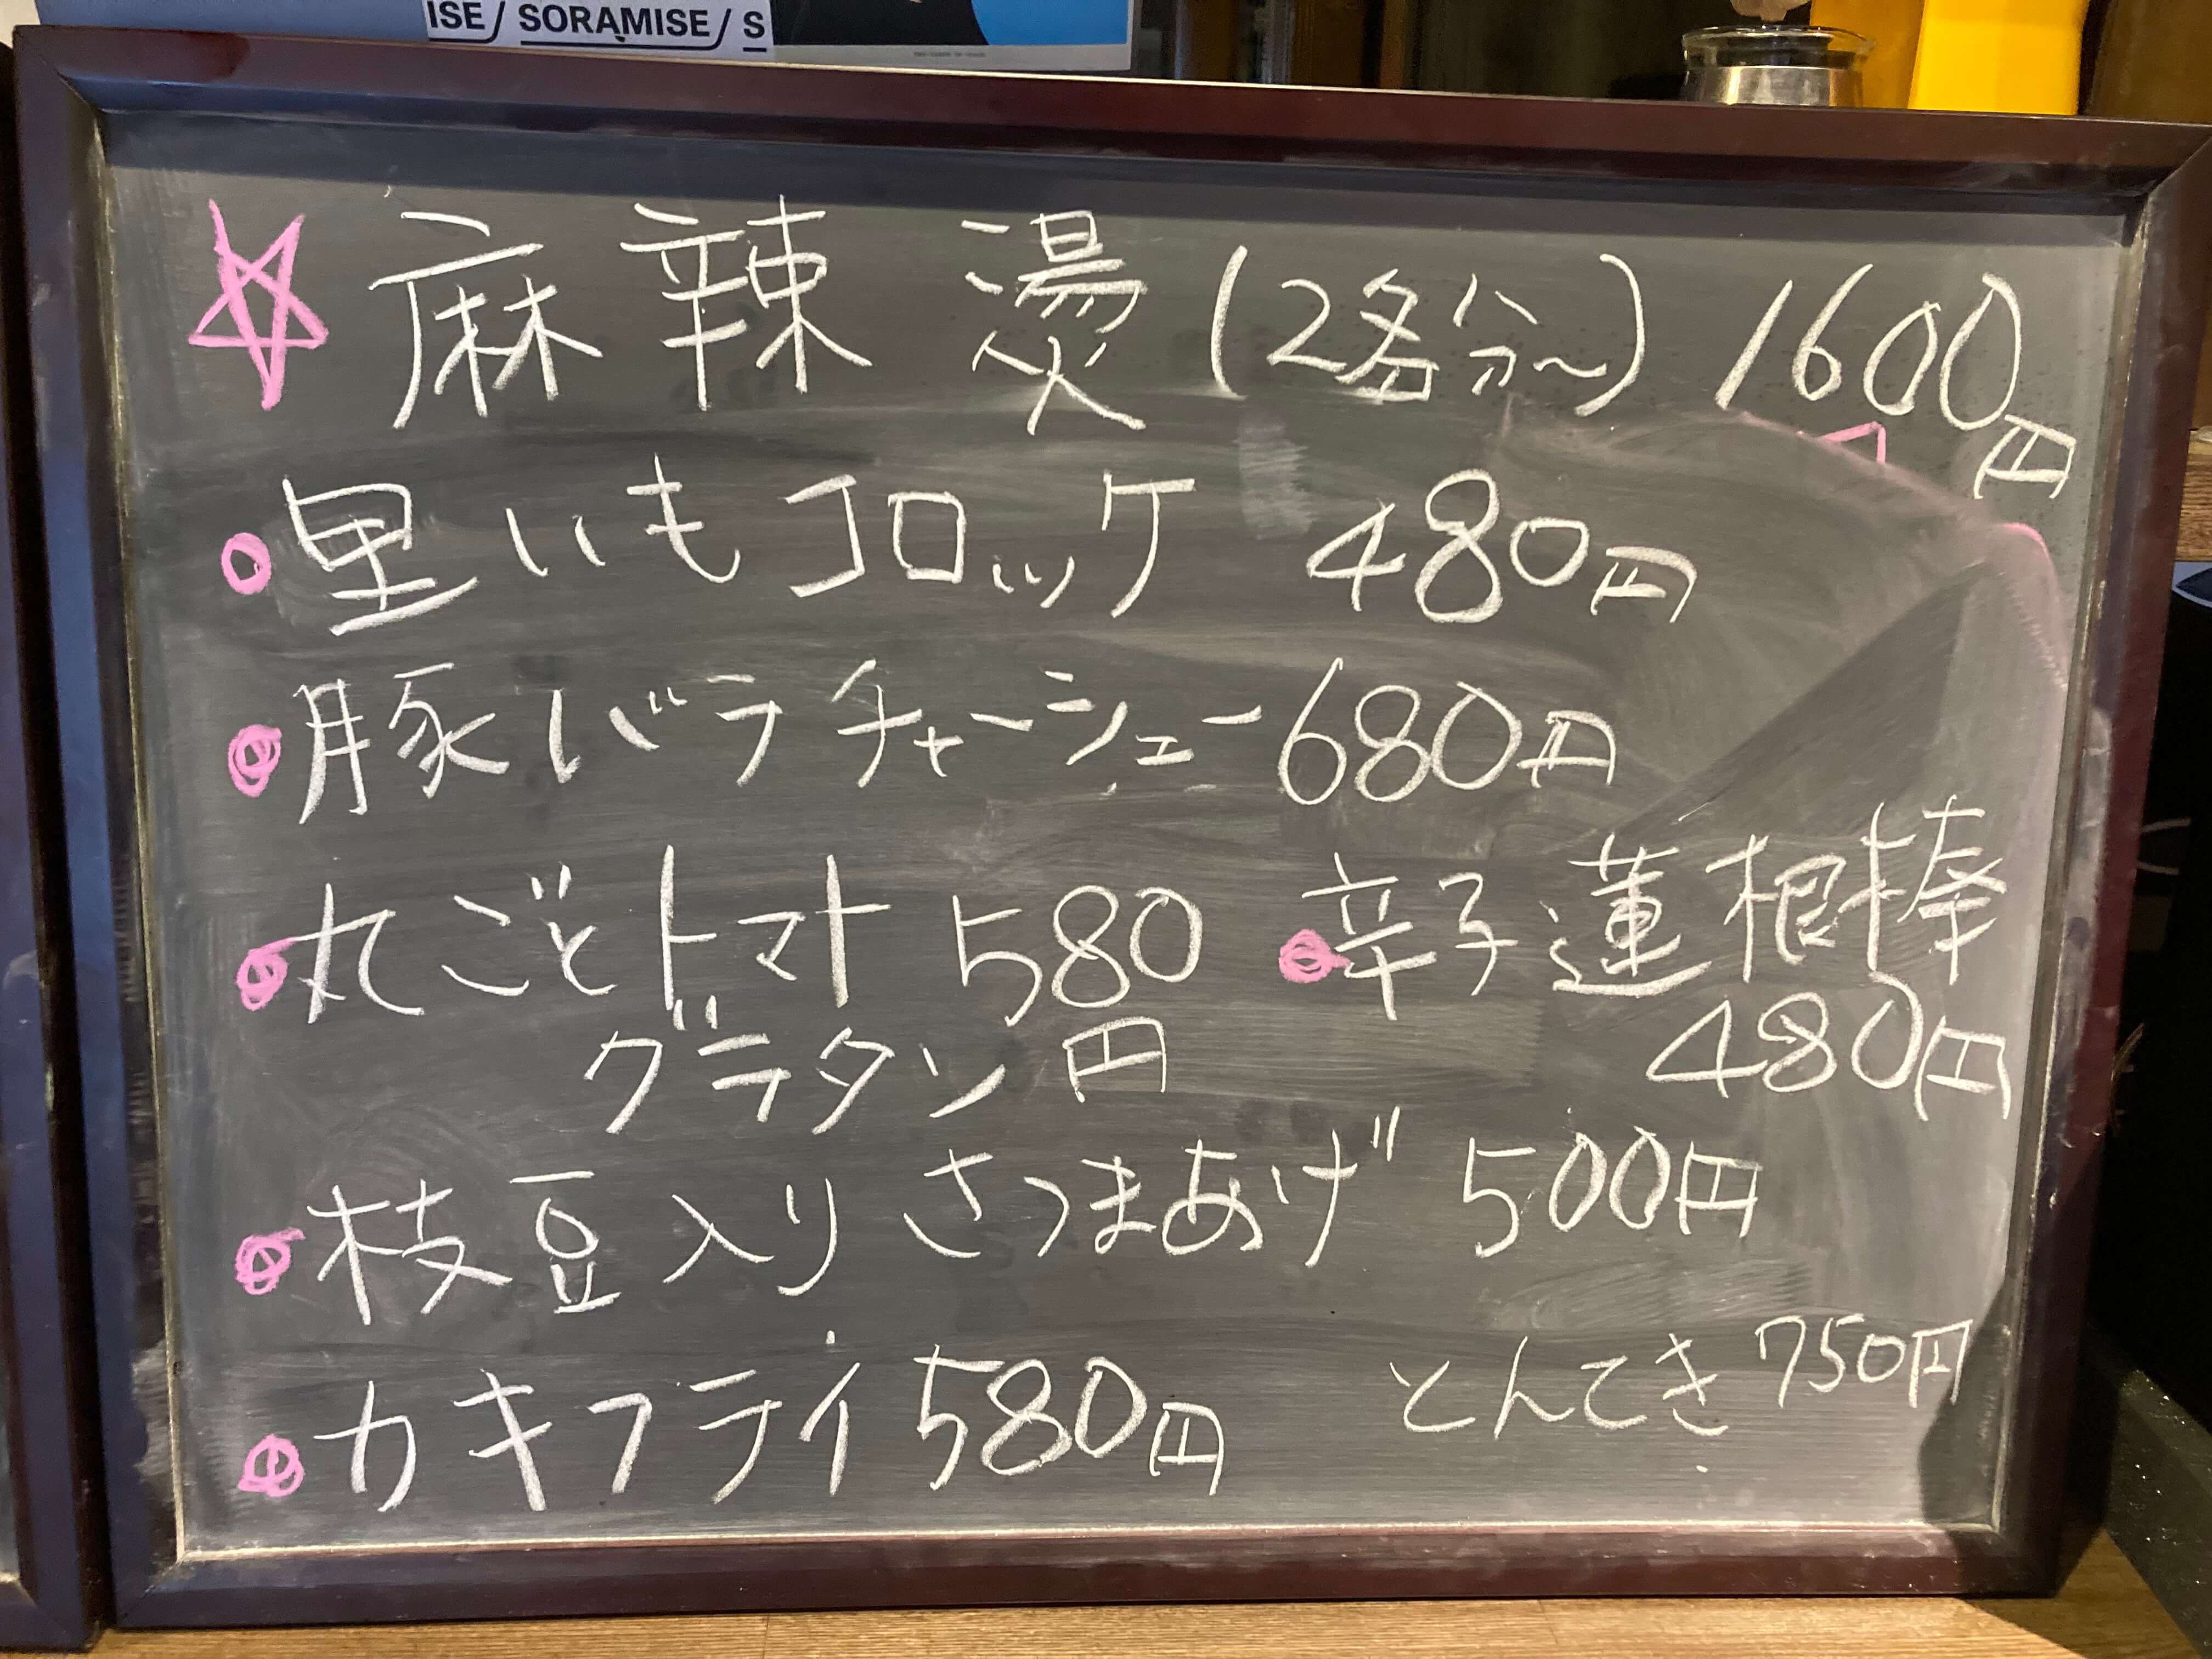 ISE/ SORAMISE/ S
☆麻辣燙(2名分〜) 1600円
○里いもコロッケ 480円
●豚バラチャーシュー680円
●丸ごとトマト 580
グラタン 円
●辛子蓮根棒
480円
●枝豆入りさつまあげ 500円
●カキフライ 580円
とんてき 750円